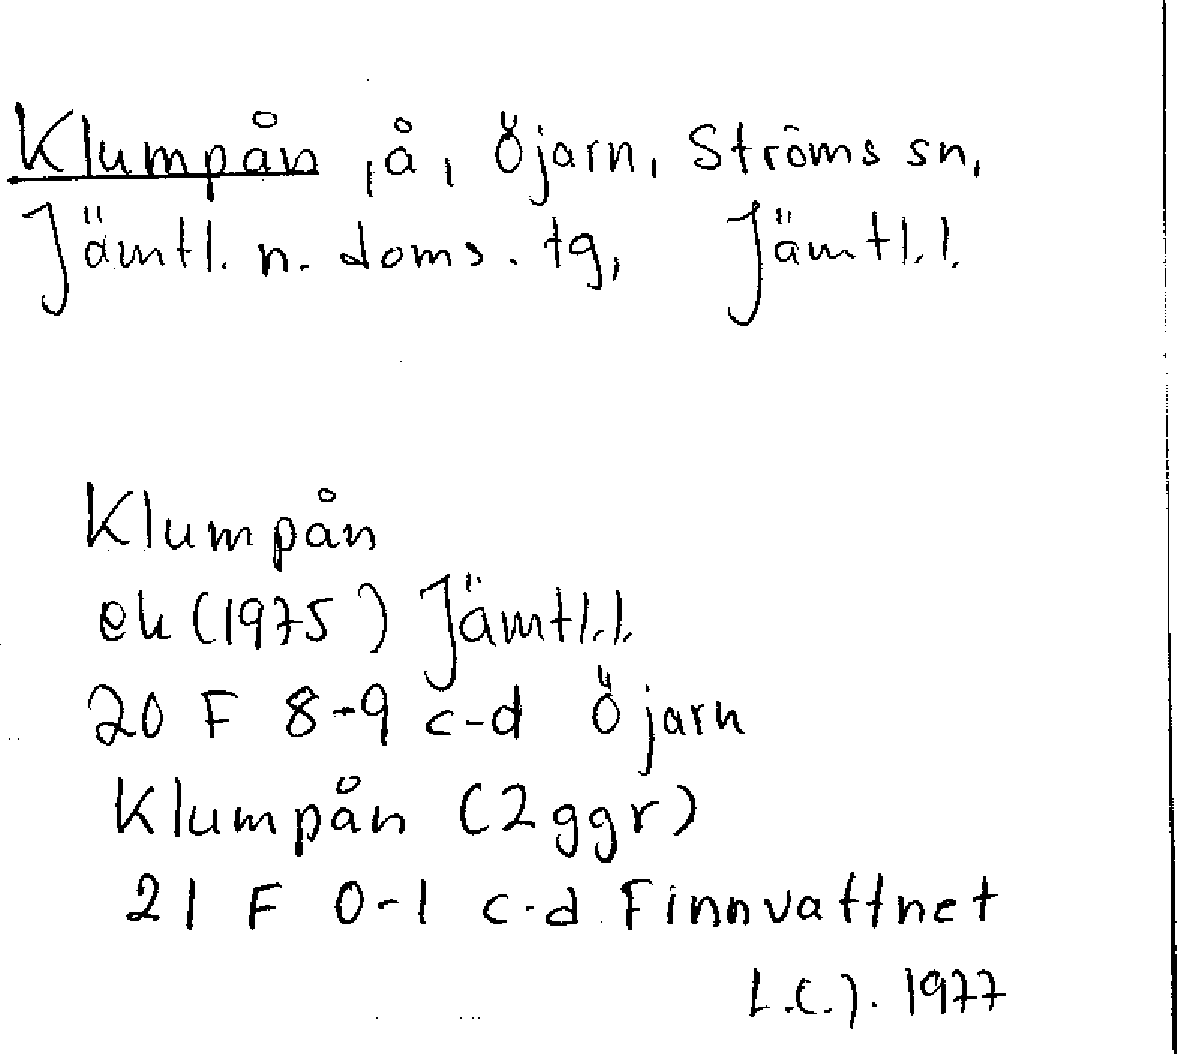 Klumpån, å, Öjarn, Ströms sn,
Jämtl. n. doms. tg, Jämtl.l.
Klumpån
ek (1975) Jämtl.l.
20 F 8-9 c-d Öjarn
Klumpån (2ggr)
21 F 0-1 c-d Finnvattnet
L.C.J. 1977